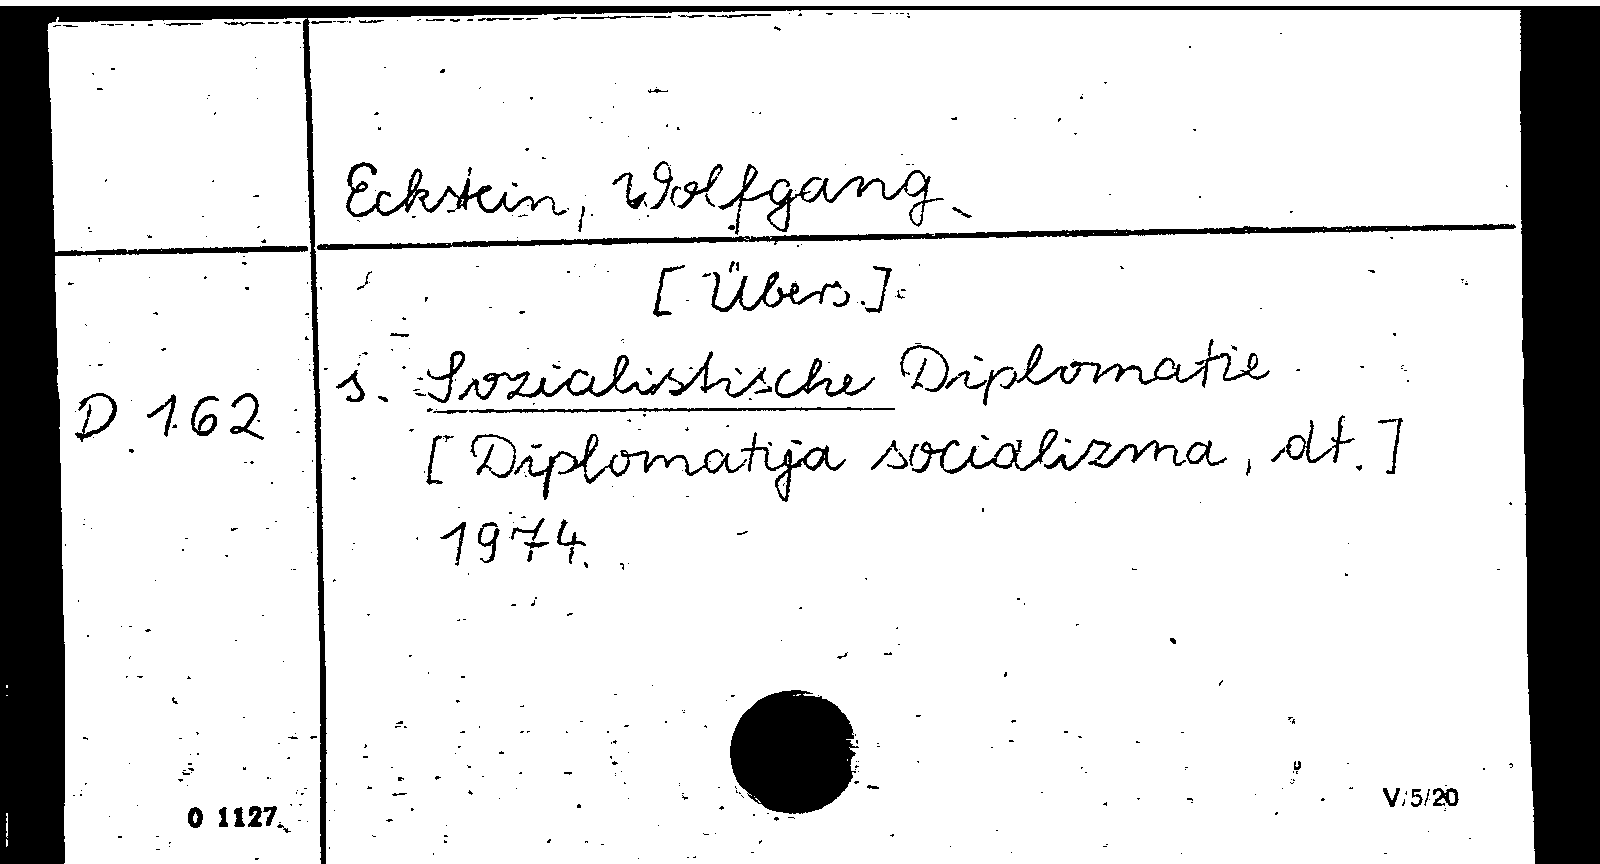 Eckstein, Wolfgang
[Übers.]
D 162
s. Sozialistische Diplomatie
[Diplomatija socializma, dt.]
1974.
O 1127
V/5/20